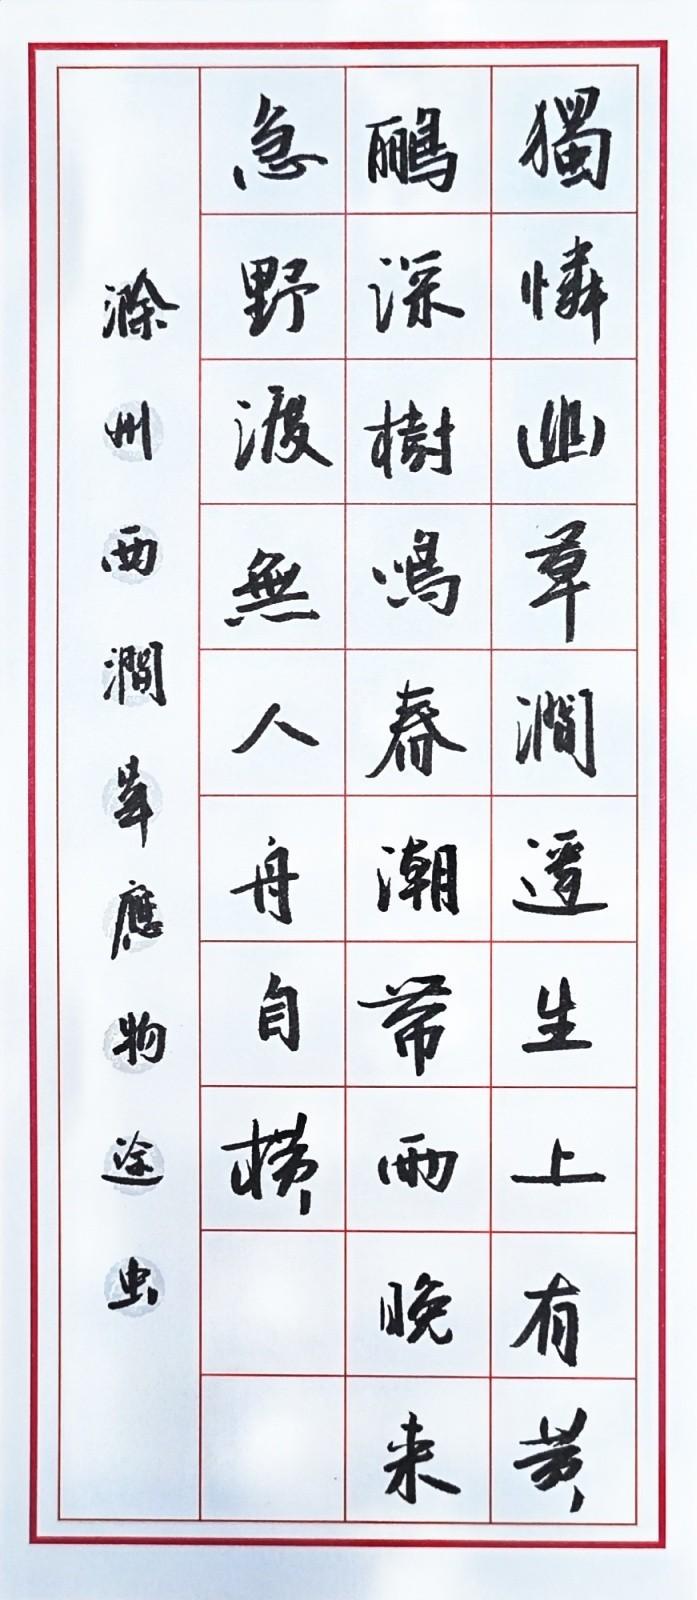 獨憐幽草澗邊生上有黄
鸝深樹鳴春潮帶雨晚来
急野渡無人舟自横
滁州西澗韋應物途虫